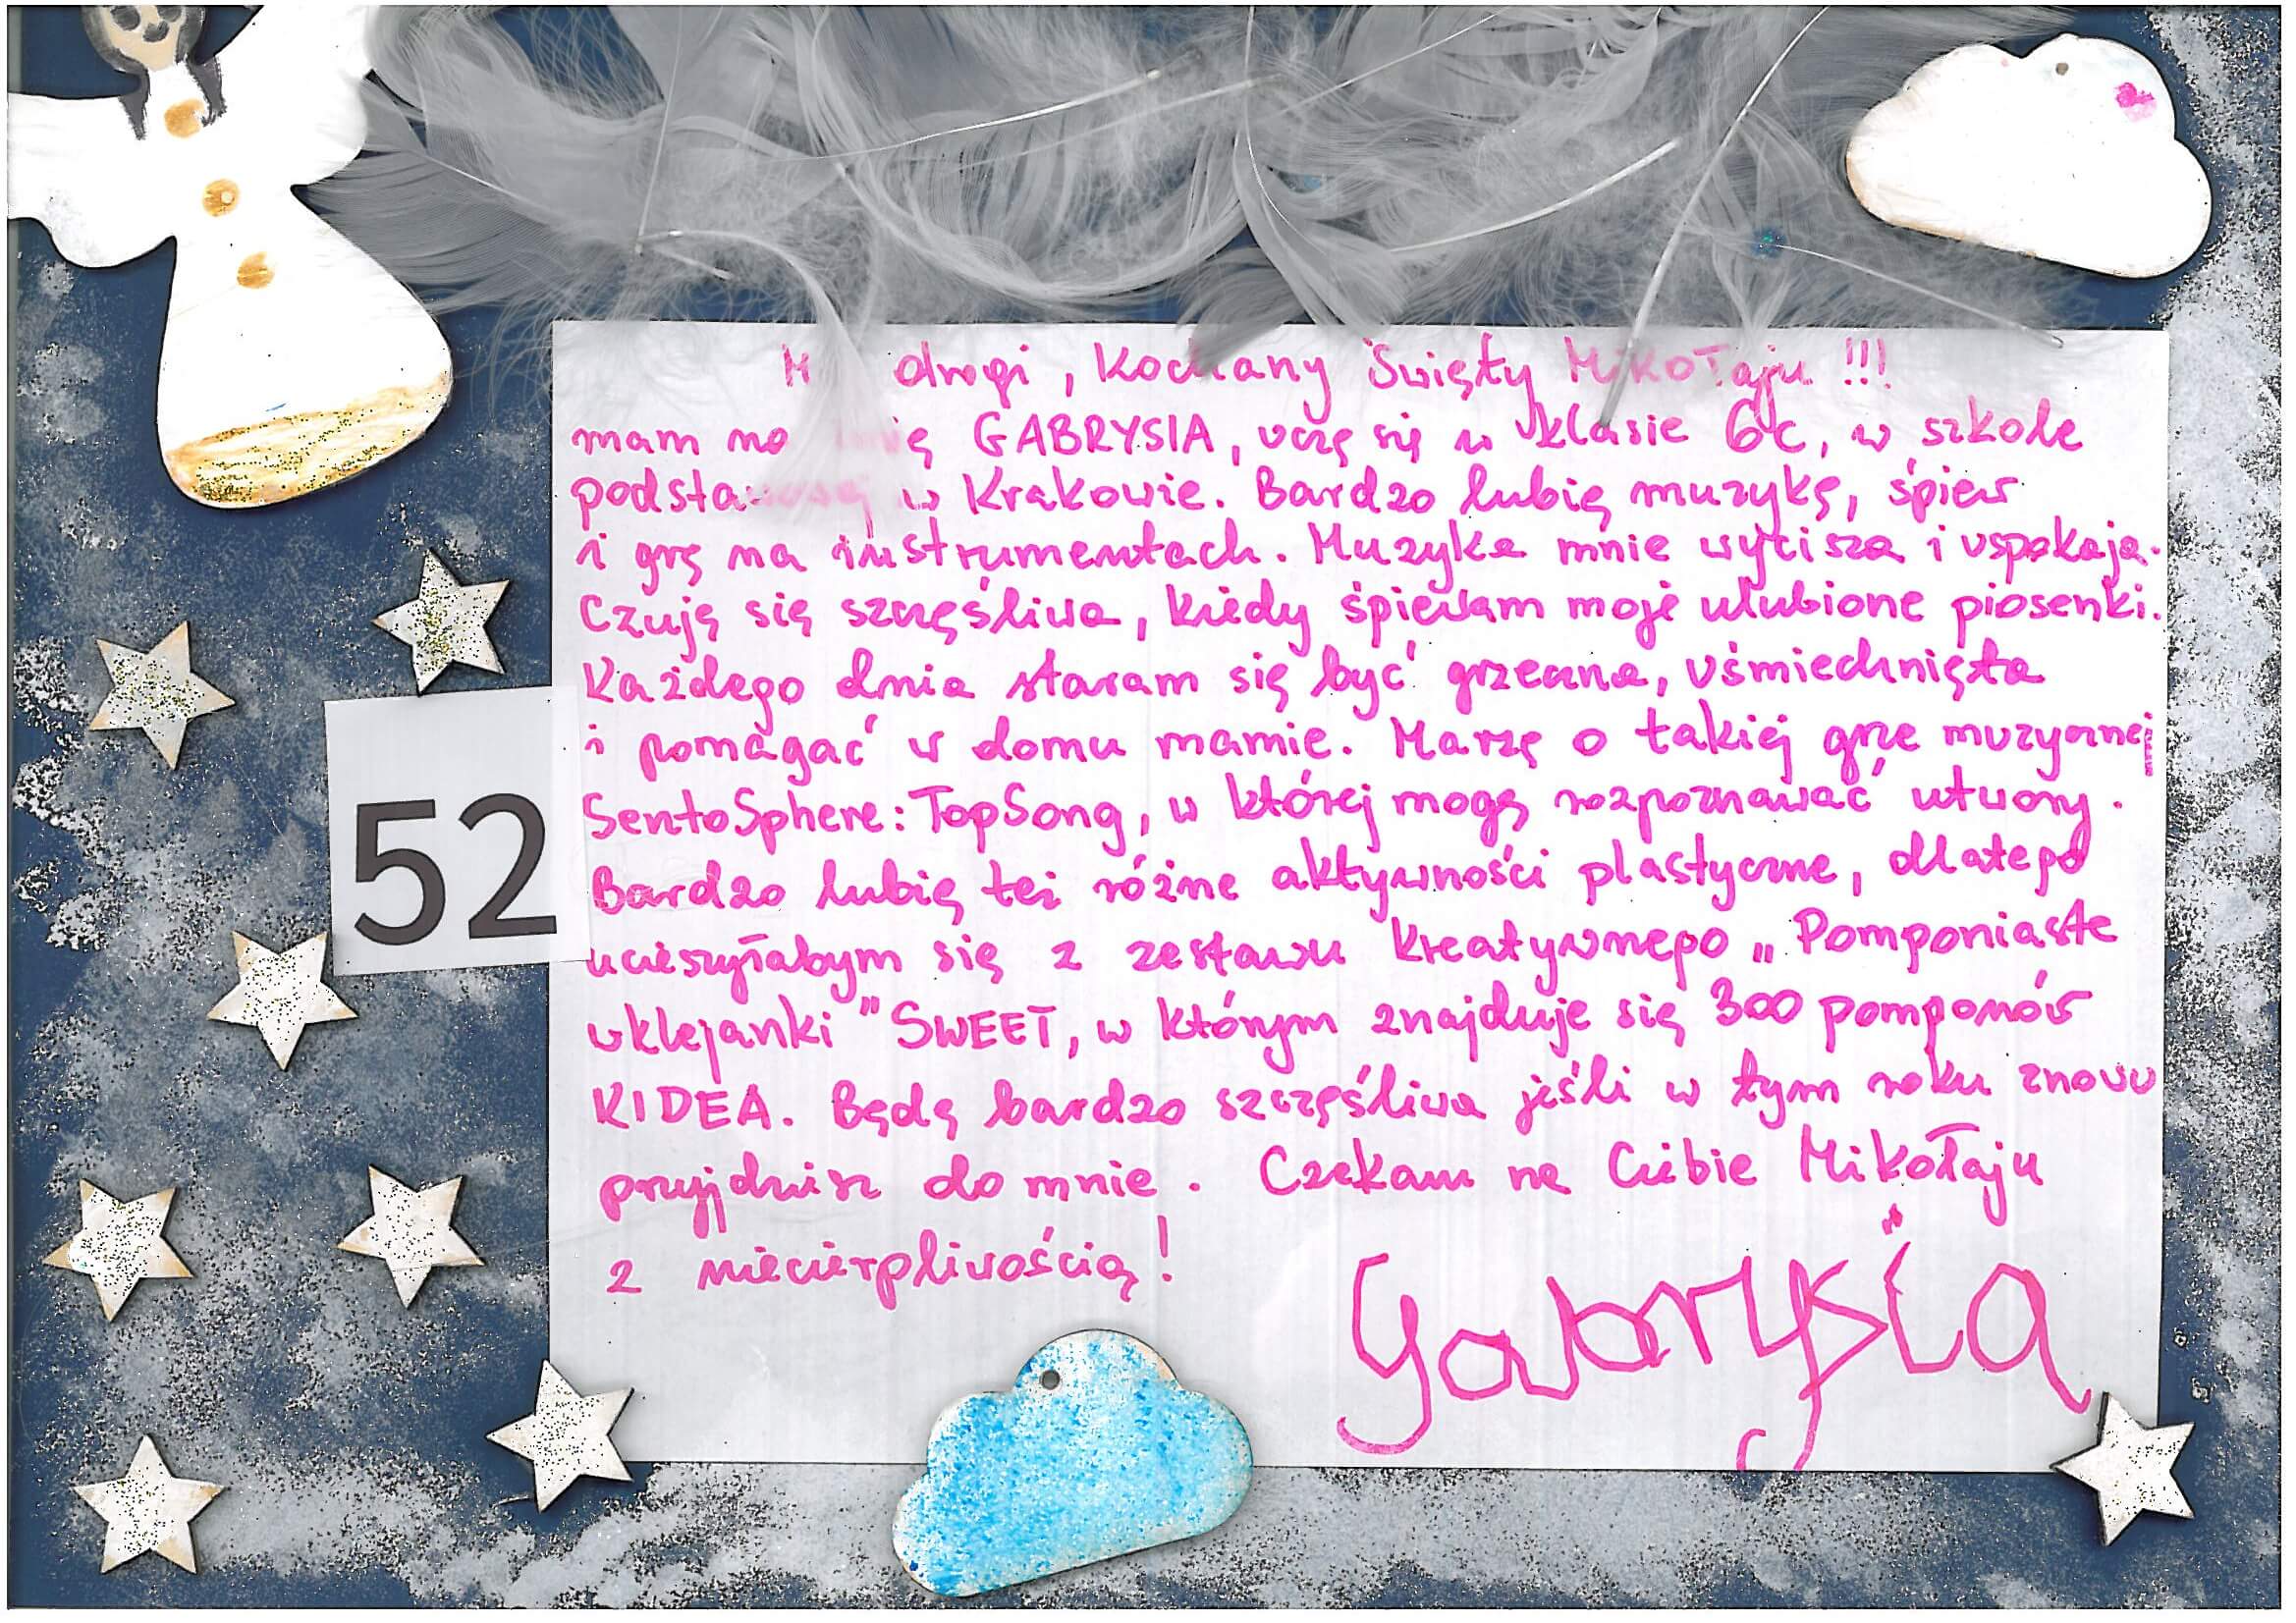 drogi, Kochany Święty Mikołaju !!!
mam na imię GABRYSIA, uczę się w klasie 6c, w szkole
podstawowej w Krakowie. Bardzo lubię muzykę, śpiew
i grę na instrumentach. Muzyka mnie wycisza i uspokaja.
Czuję się szczęśliwa, kiedy śpiewam moje ulubione piosenki.
Każdego dnia staram się być grzeczna, uśmiechnięta
i pomagać w domu mamie. Marzę o takiej grze muzycznej
SentoSphere: TopSong, w której mogę rozpoznawać utwory.
Bardzo lubię też różne aktywności plastyczne, dlatego
ucieszyłabym się z zestawu kreatywnego „Pomponiaste
wklejanki" SWEET, w którym znajduje się 300 pomponów
KIDEA. Będę bardzo szczęśliwa jeśli w tym roku znowu
przyjdziesz do mnie. Czekam na Ciebie Mikołaju
z niecierpliwością!
Gabrysia
52